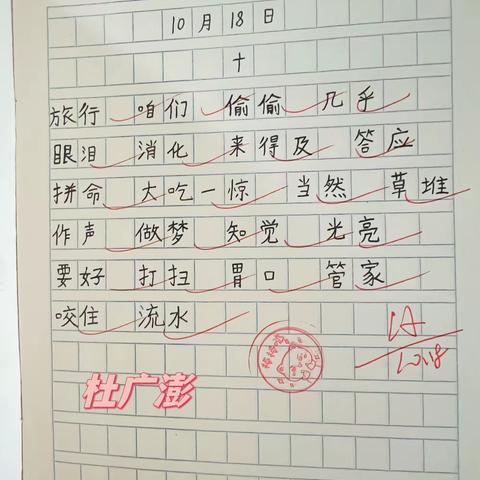 10月18日
十
旅行 咱们 偷偷 几乎
眼泪 消化 来得及 答应
拼命 大吃一惊 当然 草堆
作声 做梦 知觉 光亮
要好 打扫 胃口 管家
咬住 流水
A
10.18
棒棒哒
杜广澎